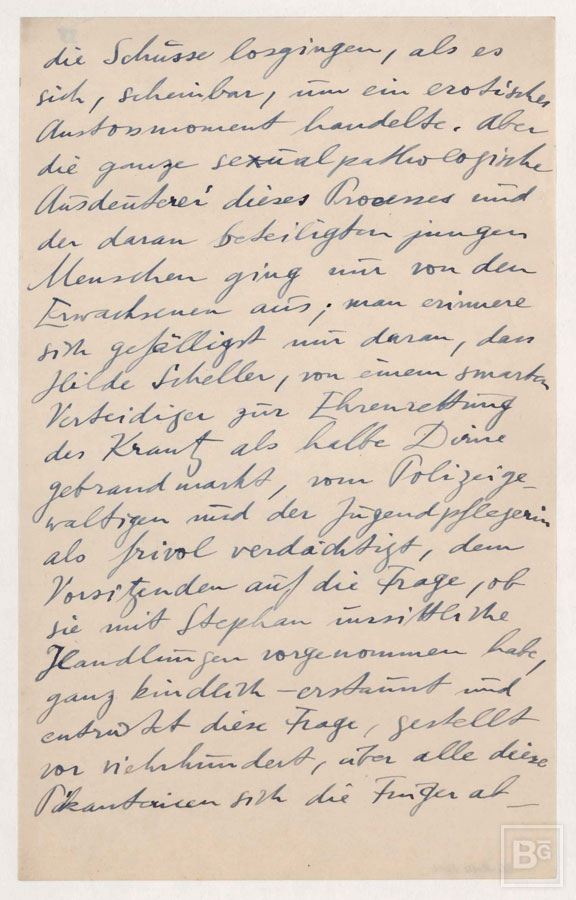 die Schüsse losgingen, als es
sich, scheinbar, um ein erotisches
Anstossmoment handelte. Aber
die ganze sexualpathologische
Ausdeuterei dieses Processes und
der daran beteiligten jungen
Menschen ging nur von den
Erwachsenen aus; man erinnere
sich gefälligst nur daran, dass
Hilde Scheller, von einem smarten
Verteidiger zur Ehrenrettung
des Krantz als halbe Dirne
gebrandmarkt, vom Polizeige-
waltigen und der Jugendpflegerin
als frivol verdächtigt, dem
Vorsitzenden auf die Frage, ob
sie mit Stephan unsittliche
Handlungen vorgenommen habe,
ganz kindlich-erstaunt und
entrüstet diese Frage, gestellt
vor vierhundert, über alle diese
Pikanterieen sich die Finger ab-
BG